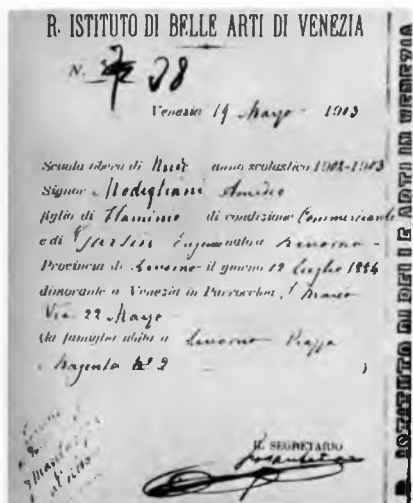 R. ISTITUTO DI BELLE ARTI DI VENEZIA
N. 38
Venezia 19 Marzo 1903
Scuola libera di Nudo anno scolastico 1902-1903
Signor Modigliani Amedeo
figlio di Flaminio di condizione Commerciante
e di Garsin Eugenia nato a Livorno
Provincia di Livorno il giorno 12 Luglio 1884
dimorante a Venezia in Parrocchia S. Marco
Via 22 Marzo
(la famiglia abita a Livorno Piazza
Magenta No 2 )
IL SEGRETARIO
R. ISTITUTO DI BELLE ARTI DI VENEZIA